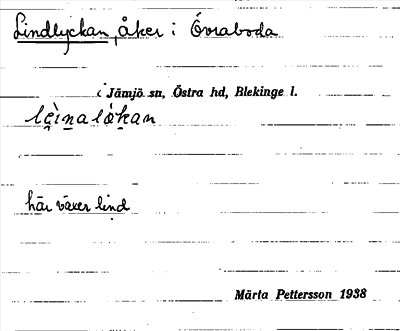 Lindlyckan, åker i Övraboda
i Jämjö sn, Östra hd, Blekinge l.
här växer lind
Märta Pettersson 1938